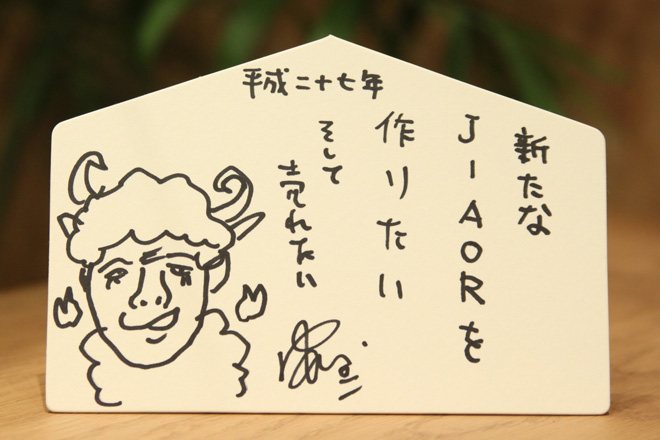 平成二十七年
新たな
J-AORを
作りたい
そして
売れたい